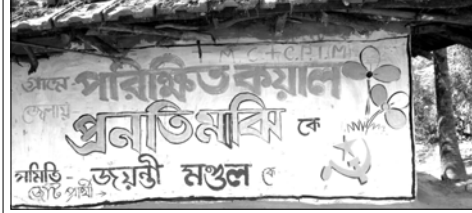 T M C + C.P.I.(M)
গ্রামে - পরিক্ষিত কয়াল
জেলায় প্রনতি মাঝি কে
সমিতি - জয়ন্তী মণ্ডল কে
জোট প্রার্থী →